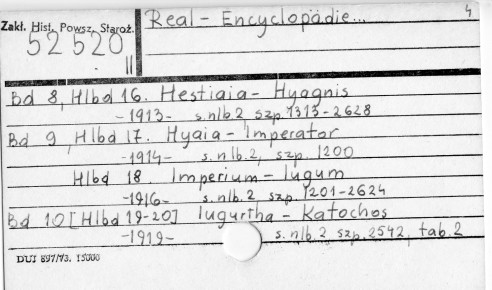 Real - Encyclopädie... 4
Zakł. Hist. Powsz. Staroż.
52520
II
Bd 8, Hlbd 16. Hestiaia - Hyagnis
-1913- s.nlb.2 szp. 1313-2628
Bd 9, Hlbd 17. Hyaia - Imperator
-1914- s.nlb.2, szp. 1200
Hlbd 18. Imperium - Iugum
-1916- s.nlb.2 szp. 1201-2624
Bd 10 [Hlbd 19-20] Iugurtha - Katochos
-1919- s.nlb.2 szp. 2542, tab.2
DUJ 897/73. 15000